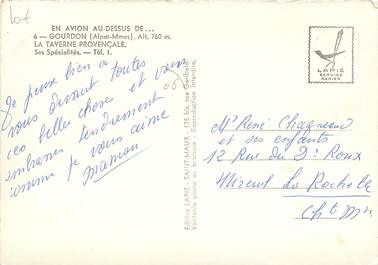 lot
EN AVION AU-DESSUS DE...
6 — GOURDON (Alpes-Mmes), Alt. 760 m.
LA TAVERNE PROVENÇALE.
Ses Spécialités. — Tél. 1.
Je pense bien à
vous devant toutes
ces belles choses et vous
embrasse tendrement
comme je vous aime
maman
06
Edition LAPIE, SAINT-MAUR - 175 bis, rue Garibaldi
Véritable photo au bromure - Reproduction interdite.
LAPIE
SERVICE
AERIEN
Mr René Chagneau
et ses enfants
12 Rue du Dr Roux
Mireuil La Rochelle
Chte Mme